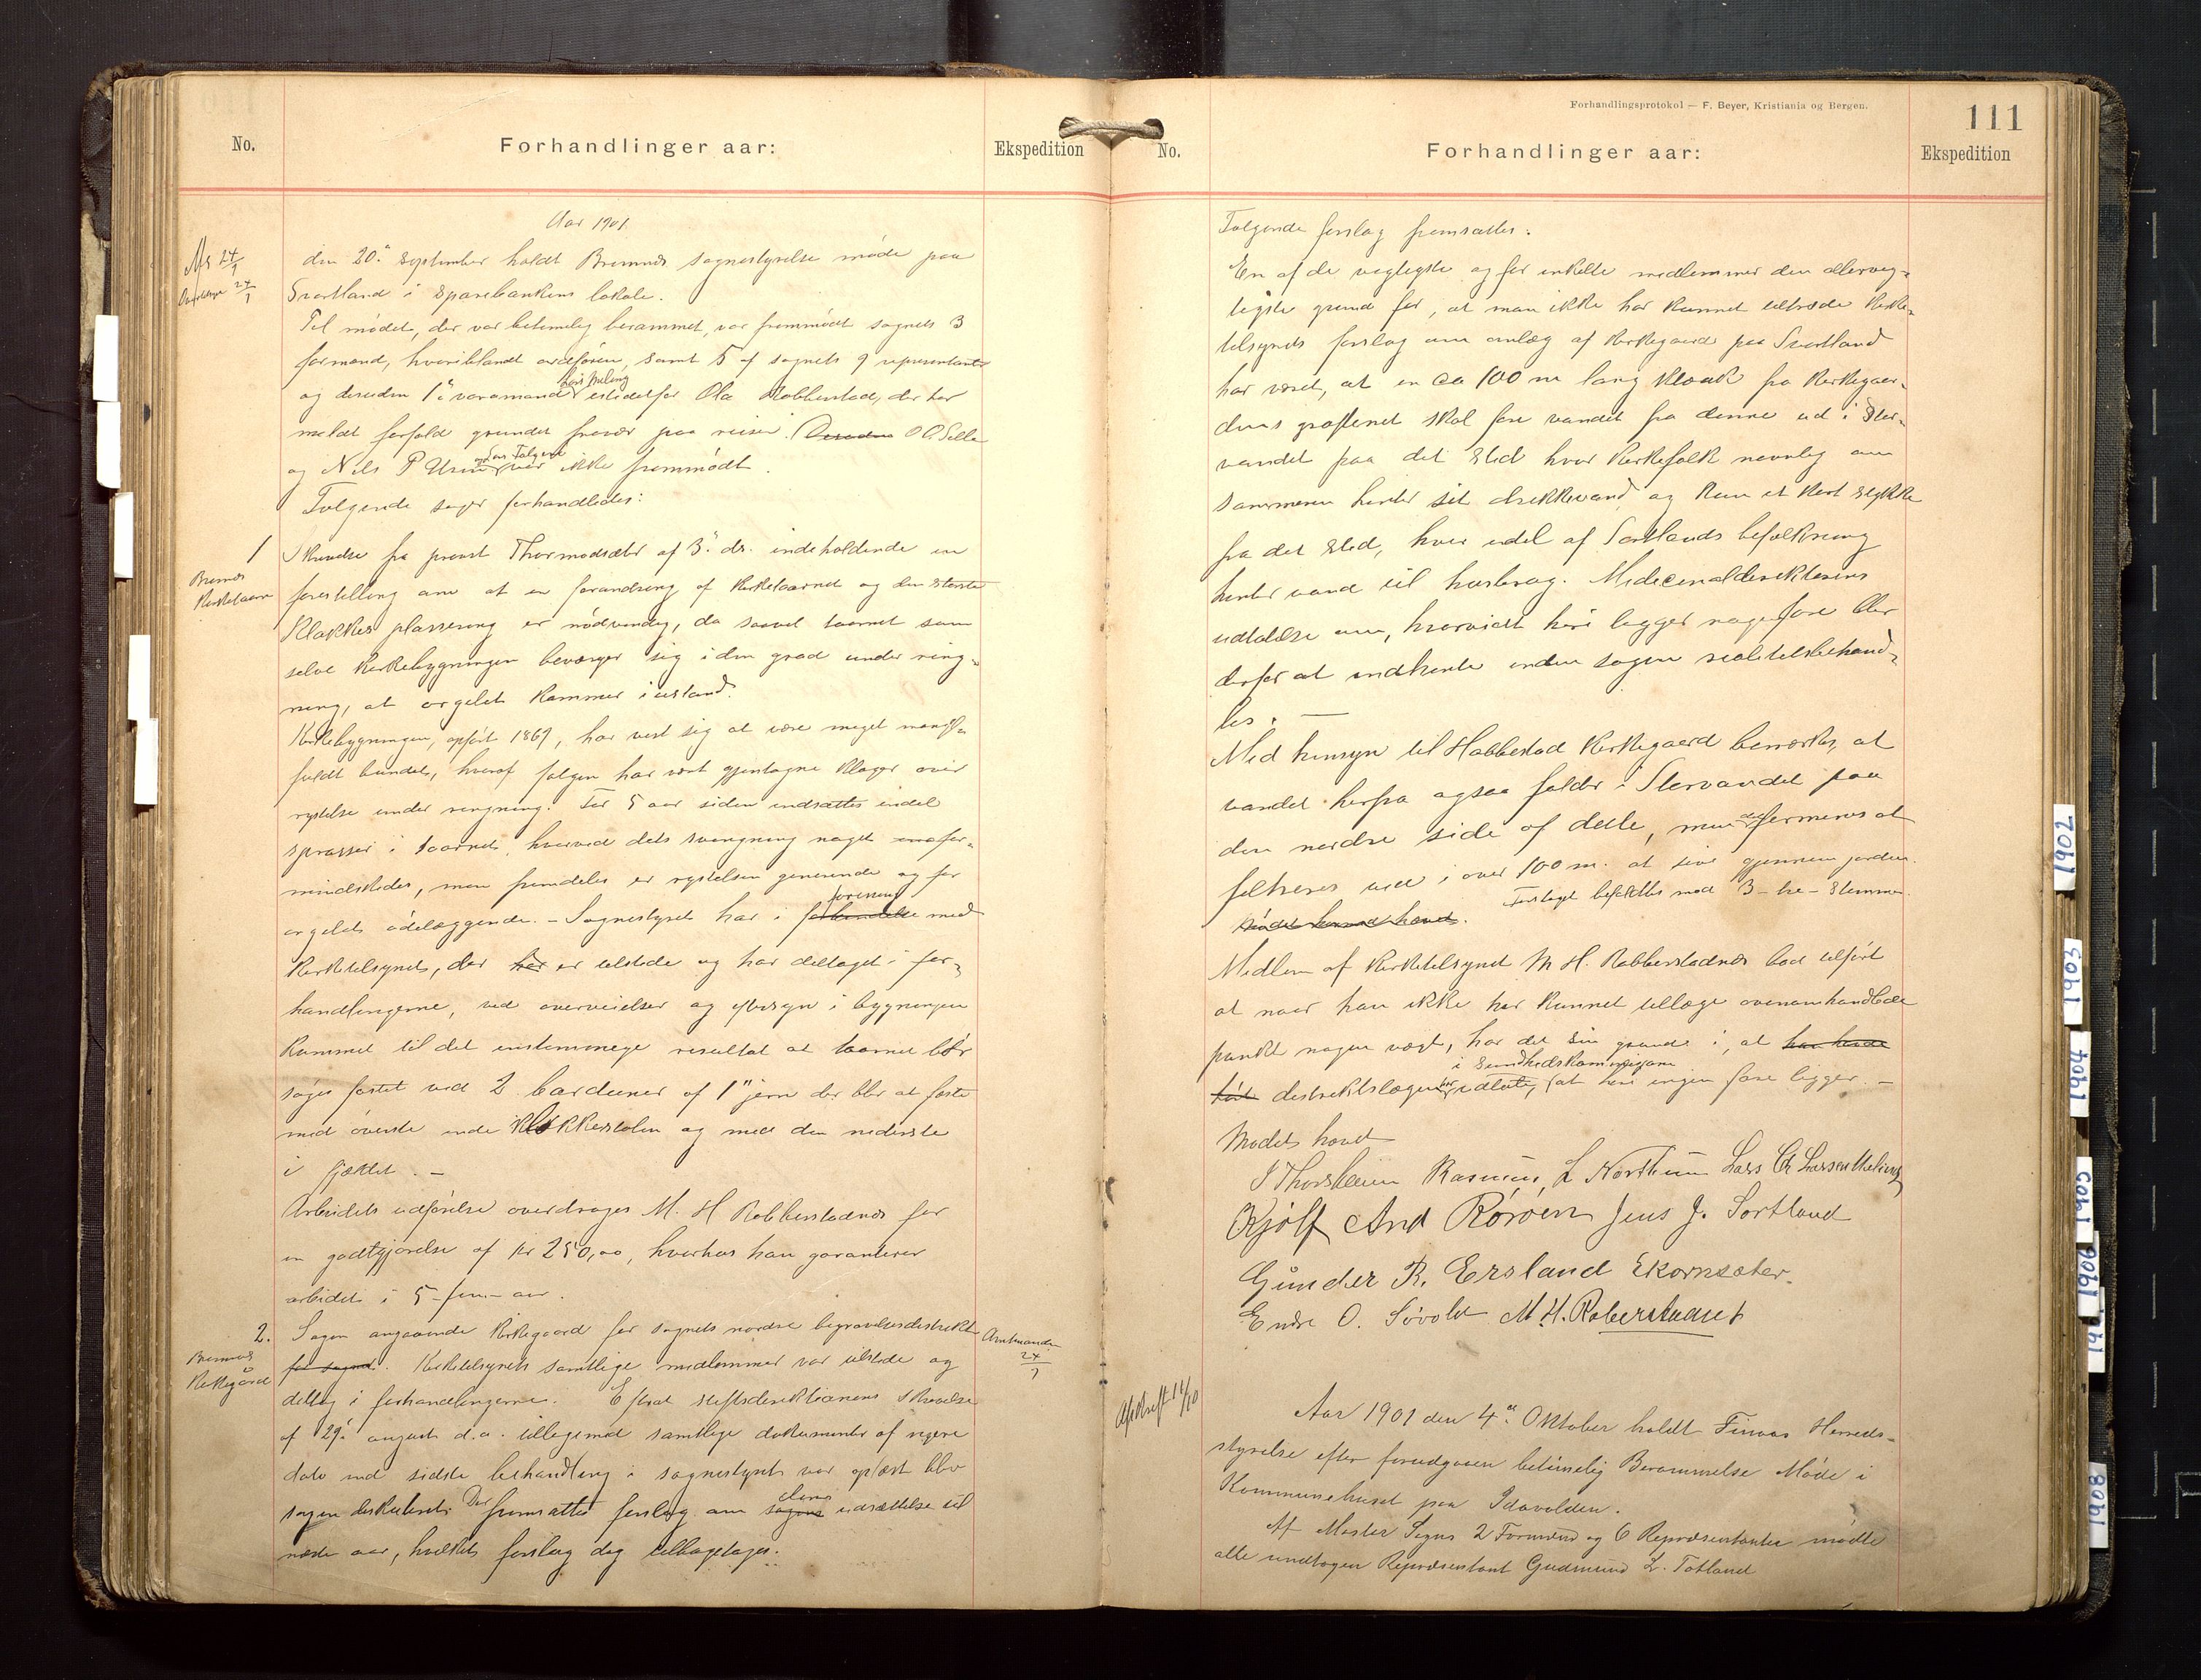 No.
Forhandlinger aar:
Ekspedition
Aar 1901
den 20de September holdt Bremnes sognestyrelse møde paa
Svortland i Sparebankens lokale.
Til mødet, der var betimelig berammet, var fremmødt sognets 3
formænd, hvoriblandt ordføren, samt 5 af sognets 9 repræsentanter
og desuden 1ste varamand Lars Meling istedetfor Ola Robberstad, der har
meldt forfald grundet fravær paa reiser. Desuden O O Selle
og Nils P Urun og Lars Folgerø var ikke fremmødt.
Følgende sager forhandledes:
1
Bremnes
Kirketaarn
Skrivelse fra provst Thormodsæter af 3de ds. indeholdende en
forestilling om at en forandring af Kirketaarnet og den største
Klokkes plassering er nødvendig, da saavel taarnet som
selve Kirkebygningen bevæger sig i den grad under ring-
ning, at orgelet kommer i ustand.
Kirkebygningen, opført 1867, har vist sig at være meget mangel-
fuldt bundet, hvoraf følgen har vært gjentagne Klager over
rystelse under ringning. For 5 aar siden indsattes endel
sprosser i taarnet, hvorved dets svingning noget for-
mindskedes, men fremdeles er rystelsen generende og for
orgelet ødelæggende. – Sognestyret har i forbindelse forening med
Kirketilsynet, der har er tilstede og har deltaget i for-
handlingerne, ved overveielser og eftersyn i bygningen
kommet til det enstemmige resultat at taarnet bør
søges fæstet ved 2 barduner af 1" jern der blir at fæste
med øverste ende i Klokkestolen og med den nederste
i fjeldet. –
Arbeidets udførelse overdrages M. H Robberstadnes for
en godtgjørelse af Kr 250,00, hvorhos han garanterer
arbeidet i 5 – fem – aar.
2.
Bremnes
Kirkegård
Amtmanden
24/9
Sagen angaaende Kirkegaard for sognets nordre begravelsesdistrikt
for sognet. Kirketilsynets samtlige medlemmer var tilstede og
deltog i forhandlingerne. Efterat stiftsdirektionens Skrivelse
af 29de august d.a. tilligemed samtlige dokumenter af nyere
dato end sidste behandling i sognestyret var oplæst blev
sagen diskuteret. Der fremsattes forslag om sagens dens udsættelse til
næste aar, hvilket forslag dog tilbagetoges.
Forhandlingsprotokol — F. Beyer, Kristiania og Bergen.
111
No.
Forhandlinger aar:
Ekspedition
Følgende forslag fremsattes:
En af de vegtigste og for enkelte medlemmer den allerveg-
tigste grund for, at man ikke har kunnet tiltræde Kirke-
tilsynets forslag om anlæg af Kirkegaard paa Svortland
har været, at en ca 100 m lang Kloak fra Kirkegaar-
dens grøftenet skal føre vandet fra denne ud i Stor-
vandet paa det sted hvor Kirkefolk navnlig om
sommeren henter sit drikkevand, og kun et kort stykke
fra det sted, hvor endel af Sortlands befolkning
henter vand til husbrug. Medicinaldirektørens
udtalelse om, hvorvidt heri ligger nogen fare blir
derfor at indhente inden sagen realitetsbehand-
les. –
Med hensyn til Habbestad Kirkegaard bemærkes, at
vandet herfra ogsaa falder i Storvandet paa
den nordre side af dette, men det formenes at
filtreres ved i over 100 m. at sive gjennem jorden.
Forslaget bifaldtes mod 3 – tre – stemmer.
Mødet hermed hævet.
Medlem af Kirketilsynet M H. Robberstadnes lod tilført
at naar han ikke har kunnet tillægge ovenomhandlede
punkt nogen vægt, har det sin grund i, at han havde
hørt distriktslægen har i Sundhedskommissjonen udtalt, at heri ingen fare ligger. –
Mødet hævet
I Thorsheim Rasmus L Nortun Lars Ch Larsen Meling
O Kjølf And Rørøen Jens J. Sortland
Gunder R. Ersland Ekornsæter.
Endre O. Søvold M. H. Roberstadnes
Afskrift 14/10
Aar 1901 den 4de Oktober holdt Finnaas Herreds-
styrelse efter forudgaaen betimelig Berammelse Møde i
Kommunehuset paa Idavolden.
Af Moster Sogns 2 Formænd og 6 Repræsentanter mødte
alle undtagen Repræsentant Gudmund L. Totland
1902
1903
1904
1905
1906
1908